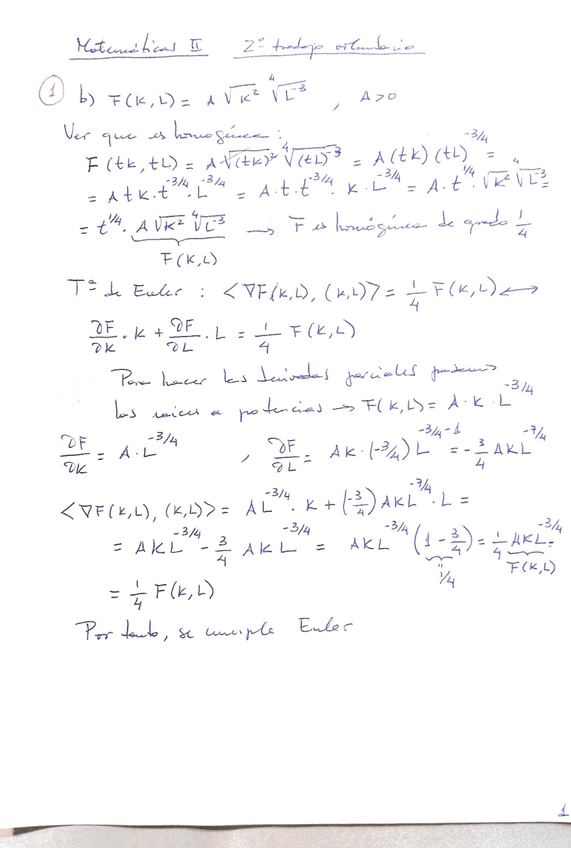 Matemáticas II 2º trabajo voluntario
1 b) F(K,L) = A √K² ∜L⁻³ , A>0
Ver que es homogénea:
F(tK, tL) = A√(tK)² ∜(tL)⁻³ = A(tK)(tL)^-3/4 =
= A t K · t^-3/4 · L^-3/4 = A·t·t^-3/4 · K·L^-3/4 = A·t^1/4 · √K² ∜L⁻³ =
= t^1/4 · A √K² ∜L⁻³ → F es homógénea de grado 1/4
F(K,L)
Tª de Euler : <∇F(K,L), (K,L)> = 1/4 F(K,L) ↔
∂F/∂K · K + ∂F/∂L · L = 1/4 F(K,L)
Para hacer las derivadas parciales pasamos
las raíces a potencias → F(K,L) = A·K·L^-3/4
∂F/∂K = A·L^-3/4 , ∂F/∂L = AK·(-3/4) L^-3/4-1 = -3/4 AKL^-7/4
<∇F(K,L), (K,L)> = AL^-3/4 · K + (-3/4) AKL^-7/4 · L =
= AKL^-3/4 - 3/4 AKL^-3/4 = AKL^-3/4 (1 - 3/4) = 1/4 AKL^-3/4 =
1/4 F(K,L)
= 1/4 F(K,L)
Por tanto, se cumple Euler
1